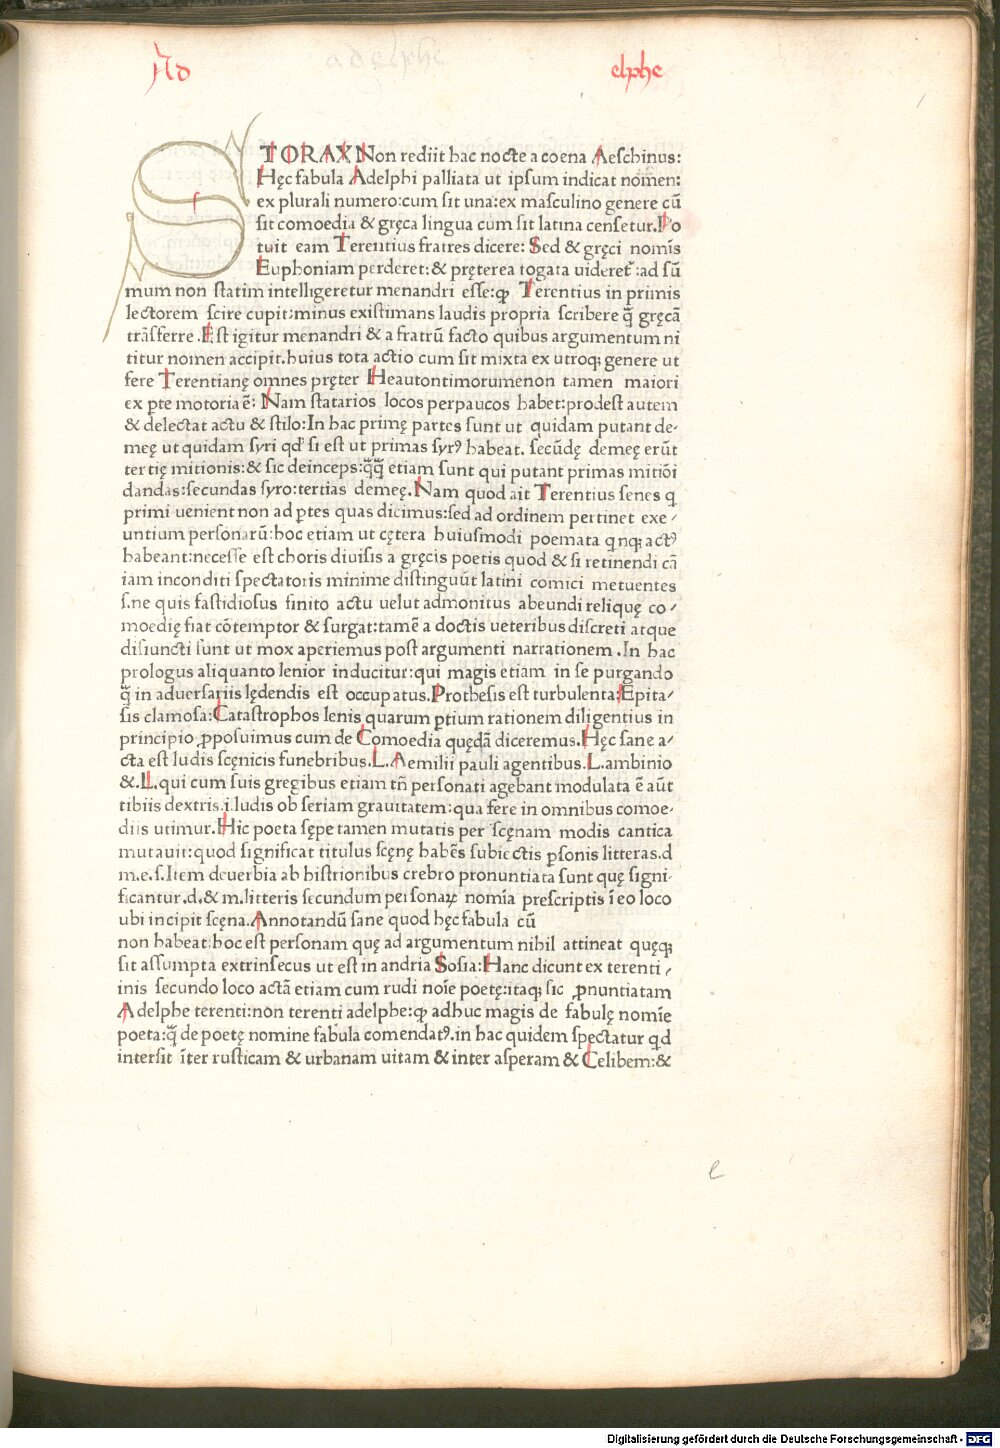 Ad adelphe elphe
STORAX Non rediit hac nocte a coena Aeſchinus:
Hęc fabula Adelphi palliata ut ipſum indicat nomen:
ex plurali numero:cum ſit una:ex maſculino genere cū
ſit comoedia & gręca lingua cum ſit latina cenſetur.Po
tuit eam Terentius fratres dicere: Sed & gręci nomīs
Euphoniam perderet:& pręterea togata uideret᷑:ad ſū
mum non ſtatim intelligeretur menandri eſſe:ꝙ Terentius in primis
lectorem ſcire cupit:minus exiſtimans laudis propria ſcribere q̄̃ gręcā
trāſferre.Eſt igitur menandri & a fratrū facto quibus argumentum ni
titur nomen accipit.huius tota actio cum ſit mixta ex utroq; genere ut
fere Terentianę omnes pręter Heautontimorumenon tamen maiori
ex ꝑte motoria ē: Nam ſtatarios locos perpaucos habet:prodeſt autem
& delectat actu & ſtilo:In hac primę partes ſunt ut quidam putant de⸗
meę ut quidam ſyri qd' ſi eſt ut primas ſyrꝰ habeat. ſecūdę demeę erūt
tertię mitionis:& ſic deinceps:q̄̃q̄̃ etiam ſunt qui putant primas mitiōi
dandas:ſecundas ſyro:tertias demeę.Nam quod ait Terentius ſenes q
primi uenient non ad ꝑtes quas dicimus:ſed ad ordinem pertinet exe⸗
untium perſonarū:hoc etiam ut cętera huiuſmodi poemata qnq; actꝰ
habeant:neceſſe eſt choris diuiſis a gręcis poetis quod & ſi retinendi cā
iam inconditi ſpectatoris minime diſtinguūt latini comici metuentes
ſ.ne quis faſtidioſus finito actu uelut admonitus abeundi reliquę co⸗
moedię fiat cōtemptor & ſurgat:tamē a doctis ueteribus diſcreti atque
diſiuncti ſunt ut mox aperiemus poſt argumenti narrationem.In hac
prologus aliquanto lenior inducitur:qui magis etiam in ſe purgando
q̄̃ in aduerſariis lędendis eſt occupatus.Protheſis eſt turbulenta:Epita⸗
ſis clamoſa:Cataſtrophos lenis quarum ꝑtium rationem diligentius in
principio ꝓpoſuimus cum de Comoedia quędā diceremus.Hęc ſane a⸗
cta eſt ludis ſcęnicis funebribus.L.Aemilii pauli agentibus.L.ambinio
&.L.qui cum ſuis gregibus etiam tñ perſonati agebant modulata ē aūt
tibiis dextris.i.ludis ob ſeriam grauitatem:qua fere in omnibus comoe⸗
diis utimur.Hic poeta ſępe tamen mutatis per ſcęnam modis cantica
mutauit:quod ſignificat titulus ſcęnę habēs ſubiectis ꝑſonis litteras.d
m.e.ſ.Item deuerbia ab hiſtrionibus crebro pronuntiata ſunt quę ſigni⸗
ficantur.d.& m.litteris ſecundum perſonaꝝ nomīa preſcriptis ī eo loco
ubi incipit ſcęna.Annotandū ſane quod hęc fabula cū
non habeat:hoc eſt perſonam quę ad argumentum nihil attineat quęq;
ſit aſſumpta extrinſecus ut eſt in andria Soſia:Hanc dicunt ex terenti⸗
inis ſecundo loco actā etiam cum rudi noīe poetę:itaq; ſic ꝓnuntiatam
Adelphe terenti:non terenti adelphe:ꝙ adhuc magis de fabulę nomīe
poeta:q̄̃ de poetę nomine fabula comendatꝰ.in hac quidem ſpectatur qd
interſit īter ruſticam & urbanam uitam & inter aſperam & Celibem:&
e
Digitalisierung gefördert durch die Deutsche Forschungsgemeinschaft - DFG